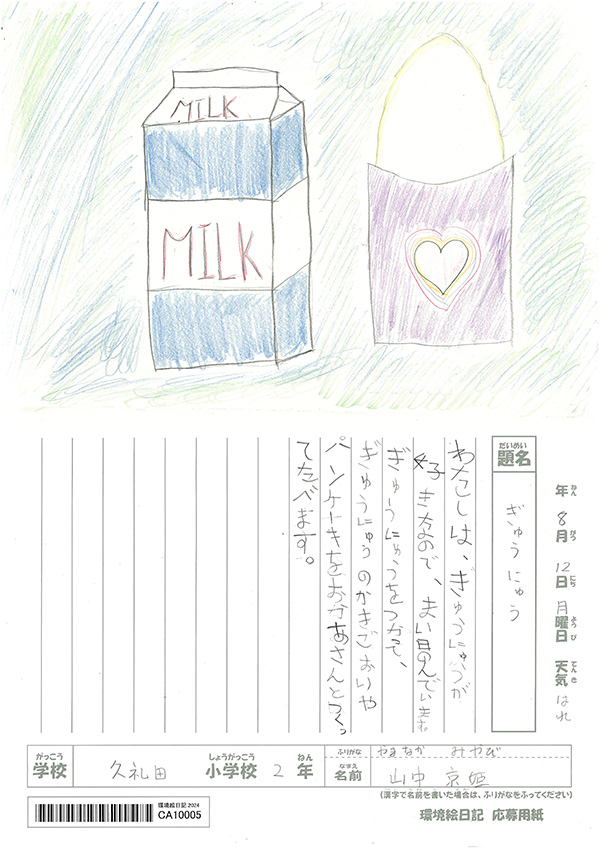 MILK
MILK
年 8月 12日 月曜日 天気 はれ
ねん がつ にち ようび てんき
だいめい
題名
ぎゅうにゅう
わたしは、ぎゅうにゅうが
好きなので、まい日のんでいます。
ぎゅうにゅうをつかって、
ぎゅうにゅうのかきごおりや
パンケーキをおかあさんとつくっ
てたべます。
がっこう しょうがっこう ねん
学校 久礼田 小学校 2 年
ふりがな やまなか みやび
なまえ
名前 山中 京姫
(漢字で名前を書いた場合は、ふりがなをふってください)
環境絵日記 2024
CA10005
環境絵日記 応募用紙